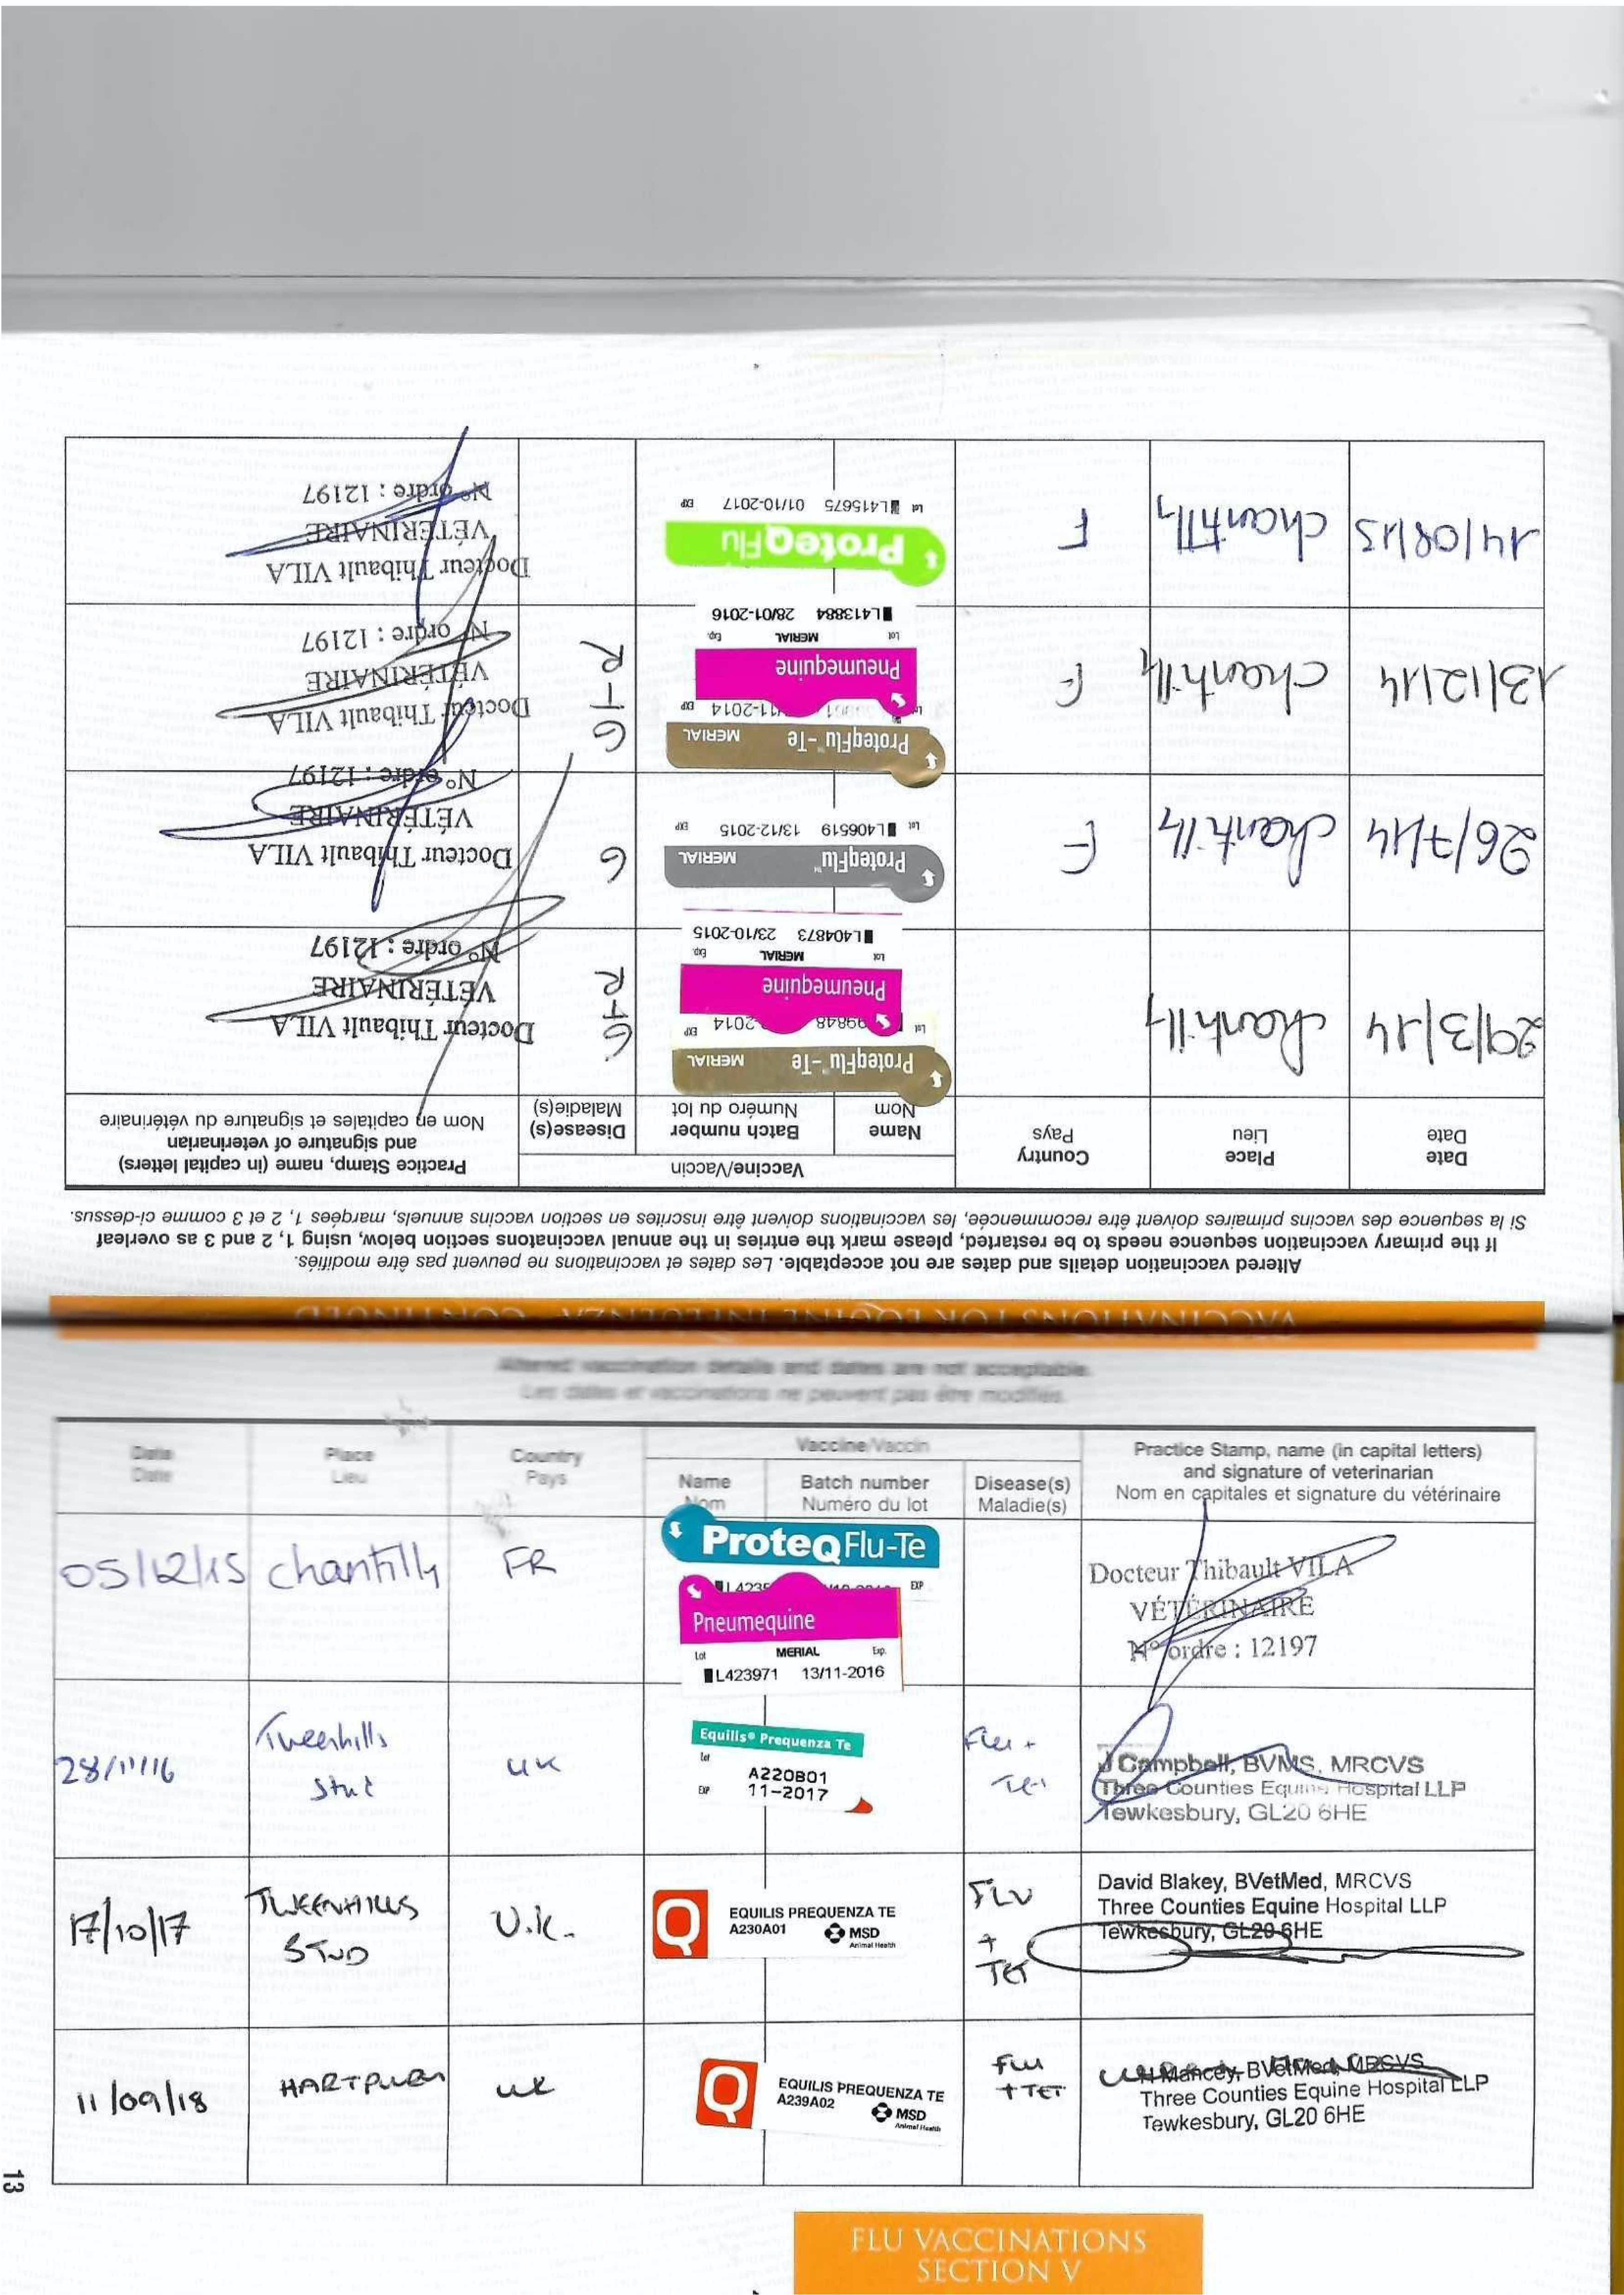 VACCINATIONS FOR EQUINE INFLUENZA - CONTINUED
Altered vaccination details and dates are not acceptable. Les dates et vaccinations ne peuvent pas être modifiés.
If the primary vaccination sequence needs to be restarted, please mark the entries in the annual vaccinatons section below, using 1, 2 and 3 as overleaf
Si la sequence des vaccins primaires doivent être recommencée, les vaccinations doivent être inscrites en section vaccins annuels, marqées 1, 2 et 3 comme ci-dessus.
Date
Date
Place
Lieu
Country
Pays
Vaccine/Vaccin
Name
Nom
Batch number
Numéro du lot
Disease(s)
Maladie(s)
Practice Stamp, name (in capital letters)
and signature of veterinarian
Nom en capitales et signature du vétérinaire
29/3/14
Chantilly
ProteqFlu-Te MERIAL
Lot 99848 -2014 EXP
Pneumequine
Lot MERIAL Exp.
L404873 23/10-2015
G
T
R
Docteur Thibault VILA
VÉTÉRINAIRE
N° ordre : 12197
26/7/14
Chantilly
F
ProteqFlu™ MERIAL
Lot L406519 13/12-2015 EXP
G
Docteur Thibault VILA
VÉTÉRINAIRE
N° ordre : 12197
13/12/14
Chantilly
F
ProteqFlu™-Te MERIAL
Lot 11-2014 EXP
Pneumequine
Lot MERIAL Exp.
L413884 28/01-2016
G
T
R
Docteur Thibault VILA
VÉTÉRINAIRE
N° ordre : 12197
14/08/15
Chantilly
F
ProteqFlu
Lot L415675 01/10-2017 EXP
Docteur Thibault VILA
VÉTÉRINAIRE
N° ordre : 12197
Altered vaccination details and dates are not acceptable.
Les dates et vaccinations ne peuvent pas être modifiés.
Date
Date
Place
Lieu
Country
Pays
Vaccine/Vaccin
Name
Nom
Batch number
Numéro du lot
Disease(s)
Maladie(s)
Practice Stamp, name (in capital letters)
and signature of veterinarian
Nom en capitales et signature du vétérinaire
05/12/15
Chantilly
FR
ProteqFlu-Te
L423 EXP
Pneumequine
Lot MERIAL Exp.
L423971 13/11-2016
Docteur Thibault VILA
VÉTÉRINAIRE
N° ordre : 12197
28/11/16
Tweenhills
Stud
UK
Equilis® Prequenza Te
Lot A220B01
EXP 11-2017
Flu +
Tet
J Campbell, BVMS, MRCVS
Three Counties Equine Hospital LLP
Tewkesbury, GL20 6HE
17/10/17
TWEENHILLS
STUD
U.K.
Q EQUILIS PREQUENZA TE
A230A01 MSD
Animal Health
FLU
+
TET
David Blakey, BVetMed, MRCVS
Three Counties Equine Hospital LLP
Tewkesbury, GL20 6HE
11/09/18
HARTPURY
UK
Q EQUILIS PREQUENZA TE
A239A02 MSD
Animal Health
Flu
+ TET
Mancey, BVetMed, MRCVS
Three Counties Equine Hospital LLP
Tewkesbury, GL20 6HE
13
FLU VACCINATIONS
SECTION V